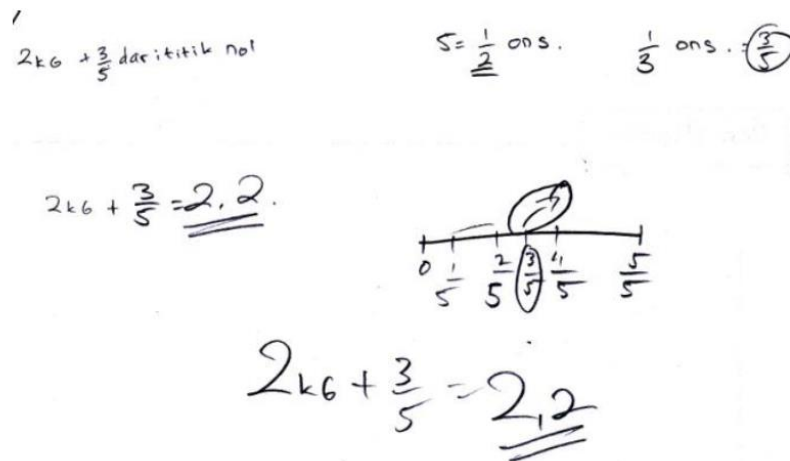 2kg + 3/5 dari titik nol
5 = 1/2 ons. 1/3 ons. = 3/5
2kg + 3/5 = 2,2.
0 1/5 2/5 3/5 4/5 5/5
2kg + 3/5 = 2,2